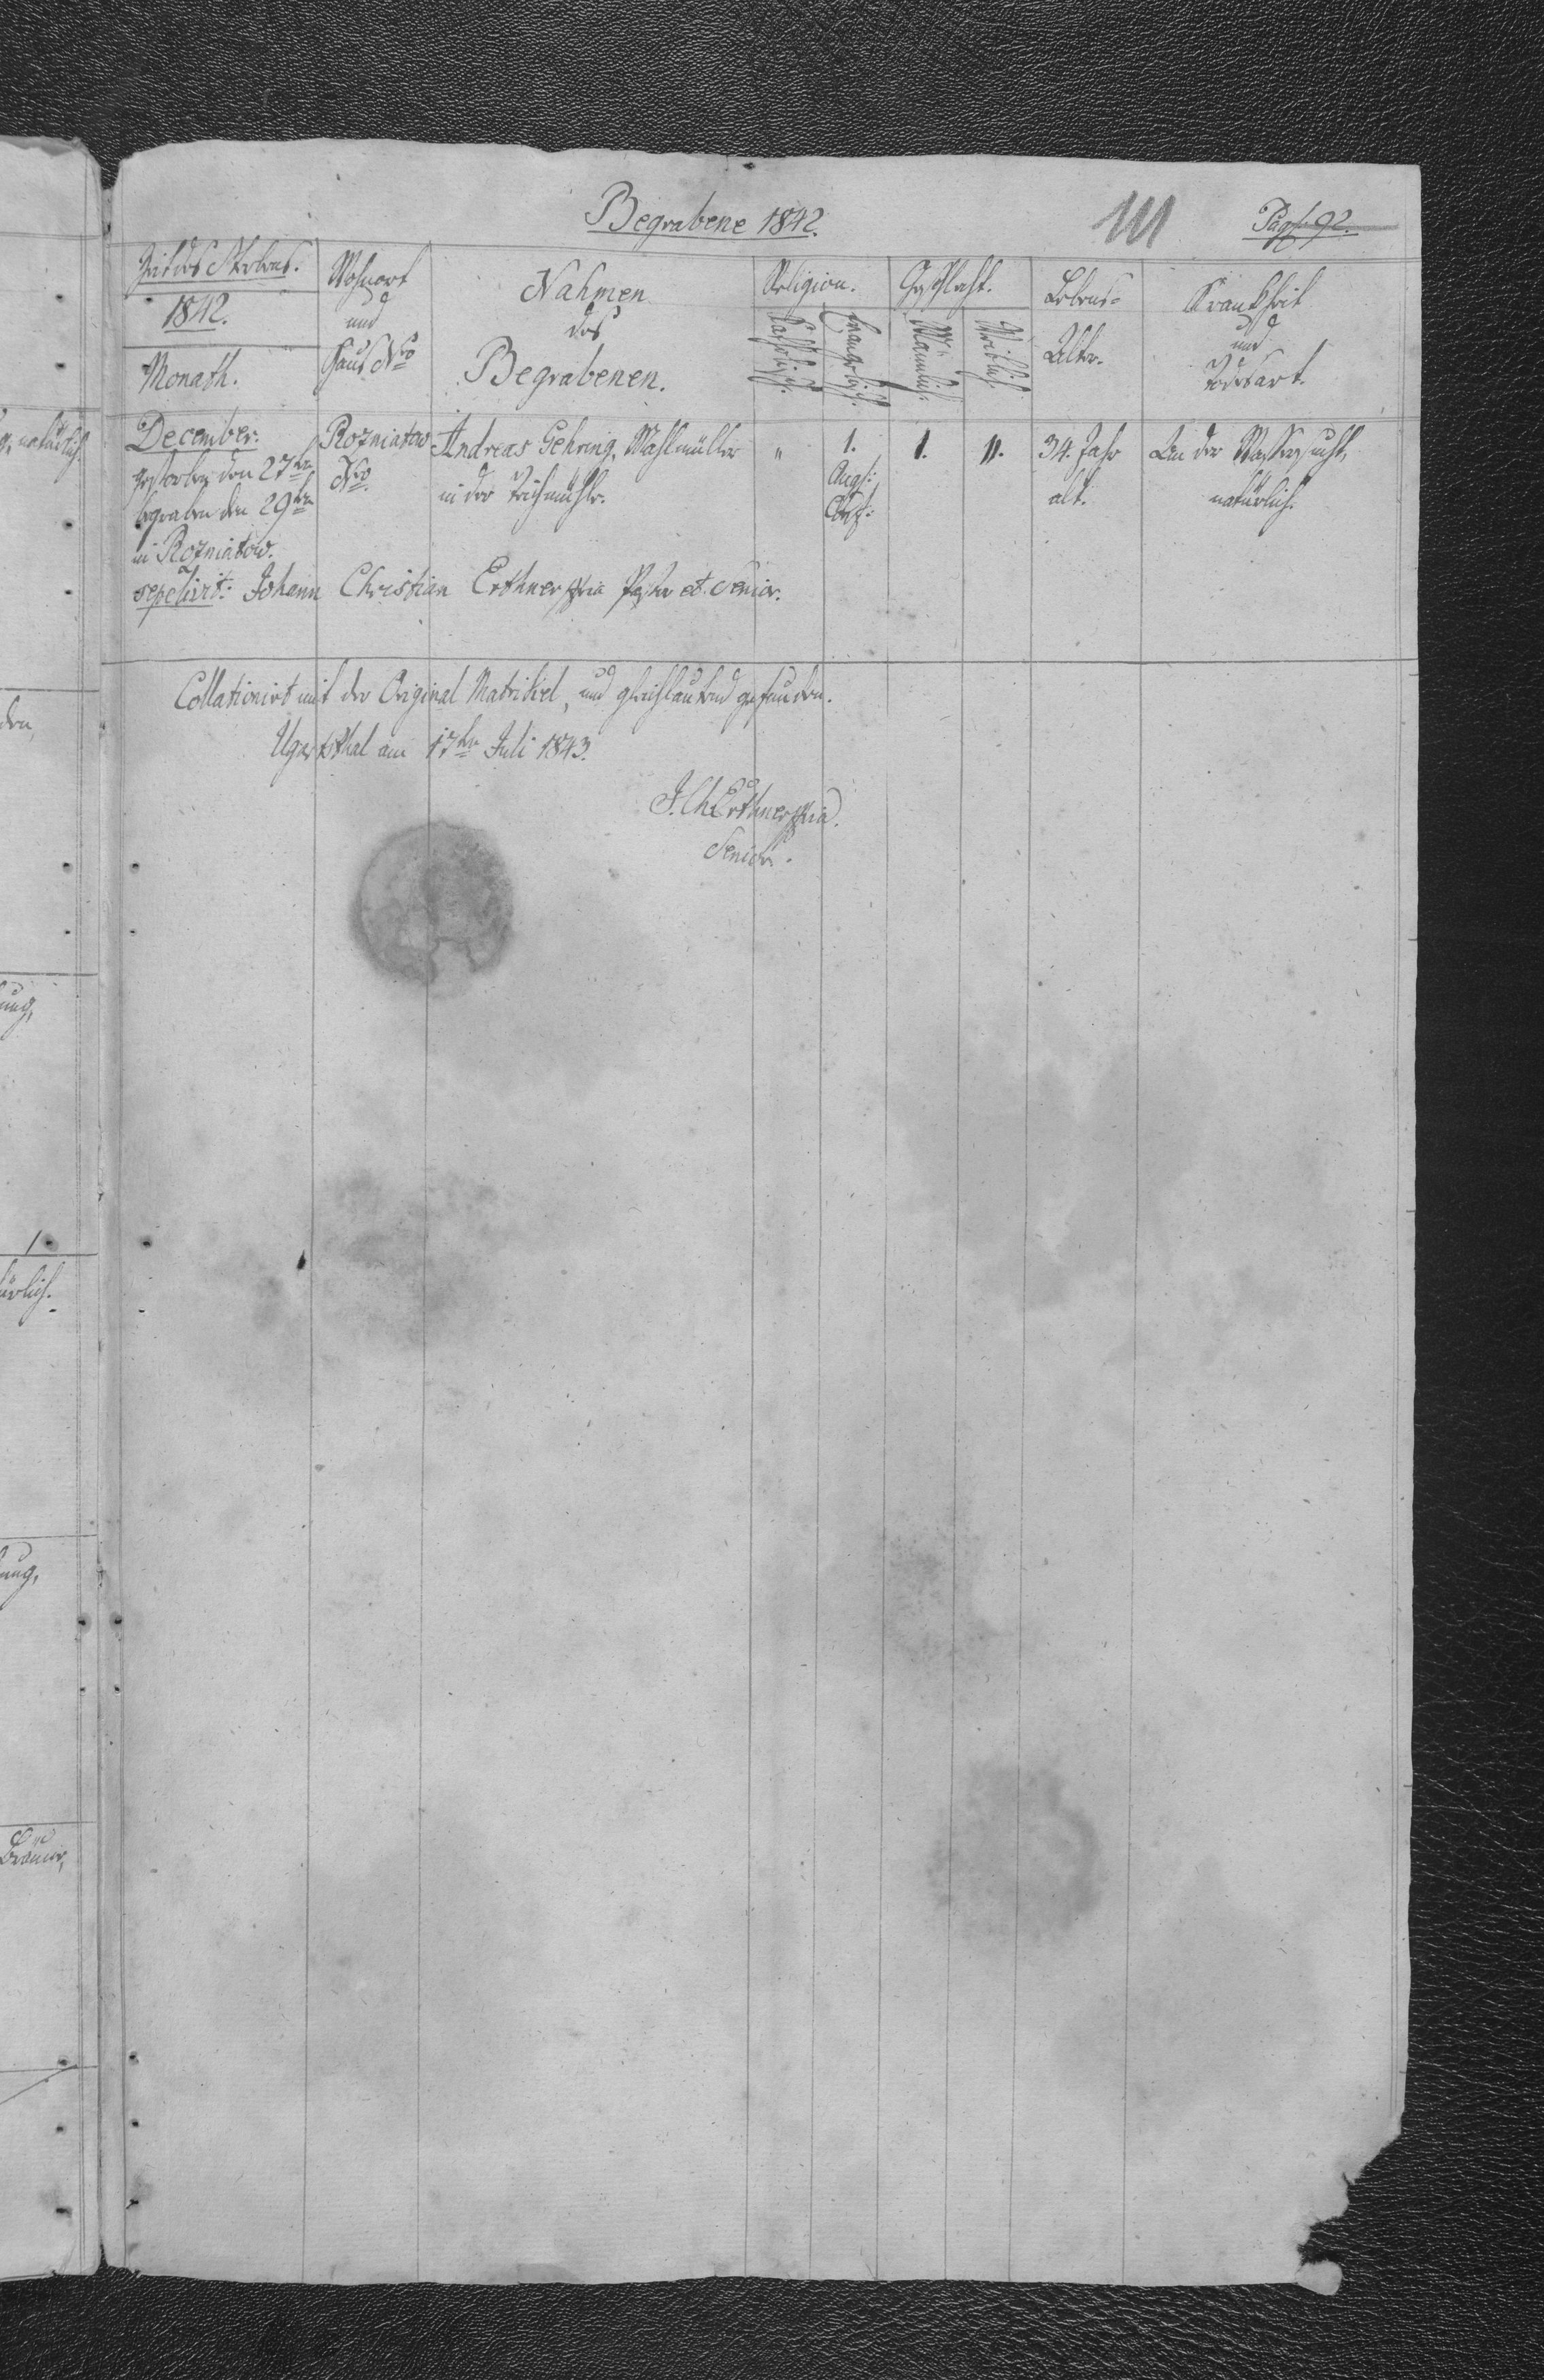 Begrabene 1842.
111
Pag: 92.
Zeit des Sterbens.
1842.
Monath.
Wohnort
und
Haus Nro
Nahmen
des
Begrabenen.
Religion.
Katholisch.
Evangelisch.
Geschlecht.
Männlich.
Weiblich.
Lebens-
Alter.
Krankheit
und
Todesart.
December.
gestorben den 27ten
begraben den 29ten
in Rozniatow.
Rozniatow
Nro
Andreas Gehring, Mahlmüller
in der Teichmühle.
"
1.
Augs:
Conf:
1.
11.
34. Jahr
alt.
An der Wassersucht,
natürlich.
sepelivit: Johann Christian Erthner mpria Pastor et Senior.
Collationirt mit der Original Matrikel, und gleichlautend gefunden.
Ugartsthal am 17ten Juli 1843.
J. Ch Erthner mpria.
Senior.
natürlich.
den,
ung,
1
ürlich.
ung,
Bräune,